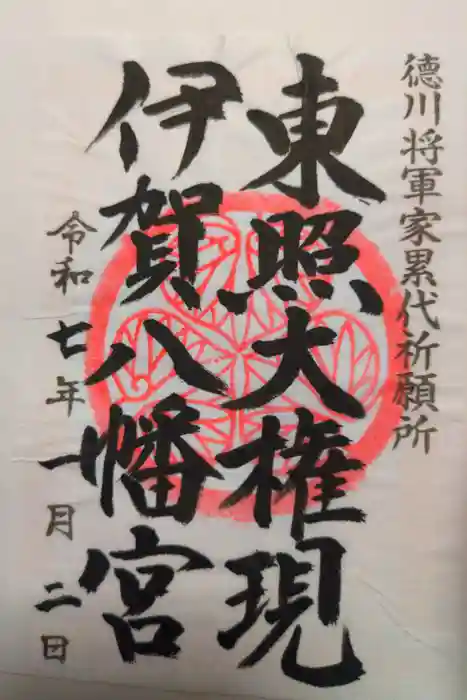 徳川将軍家累代祈願所
東照大権現
伊賀八幡宮
令和七年十一月二日